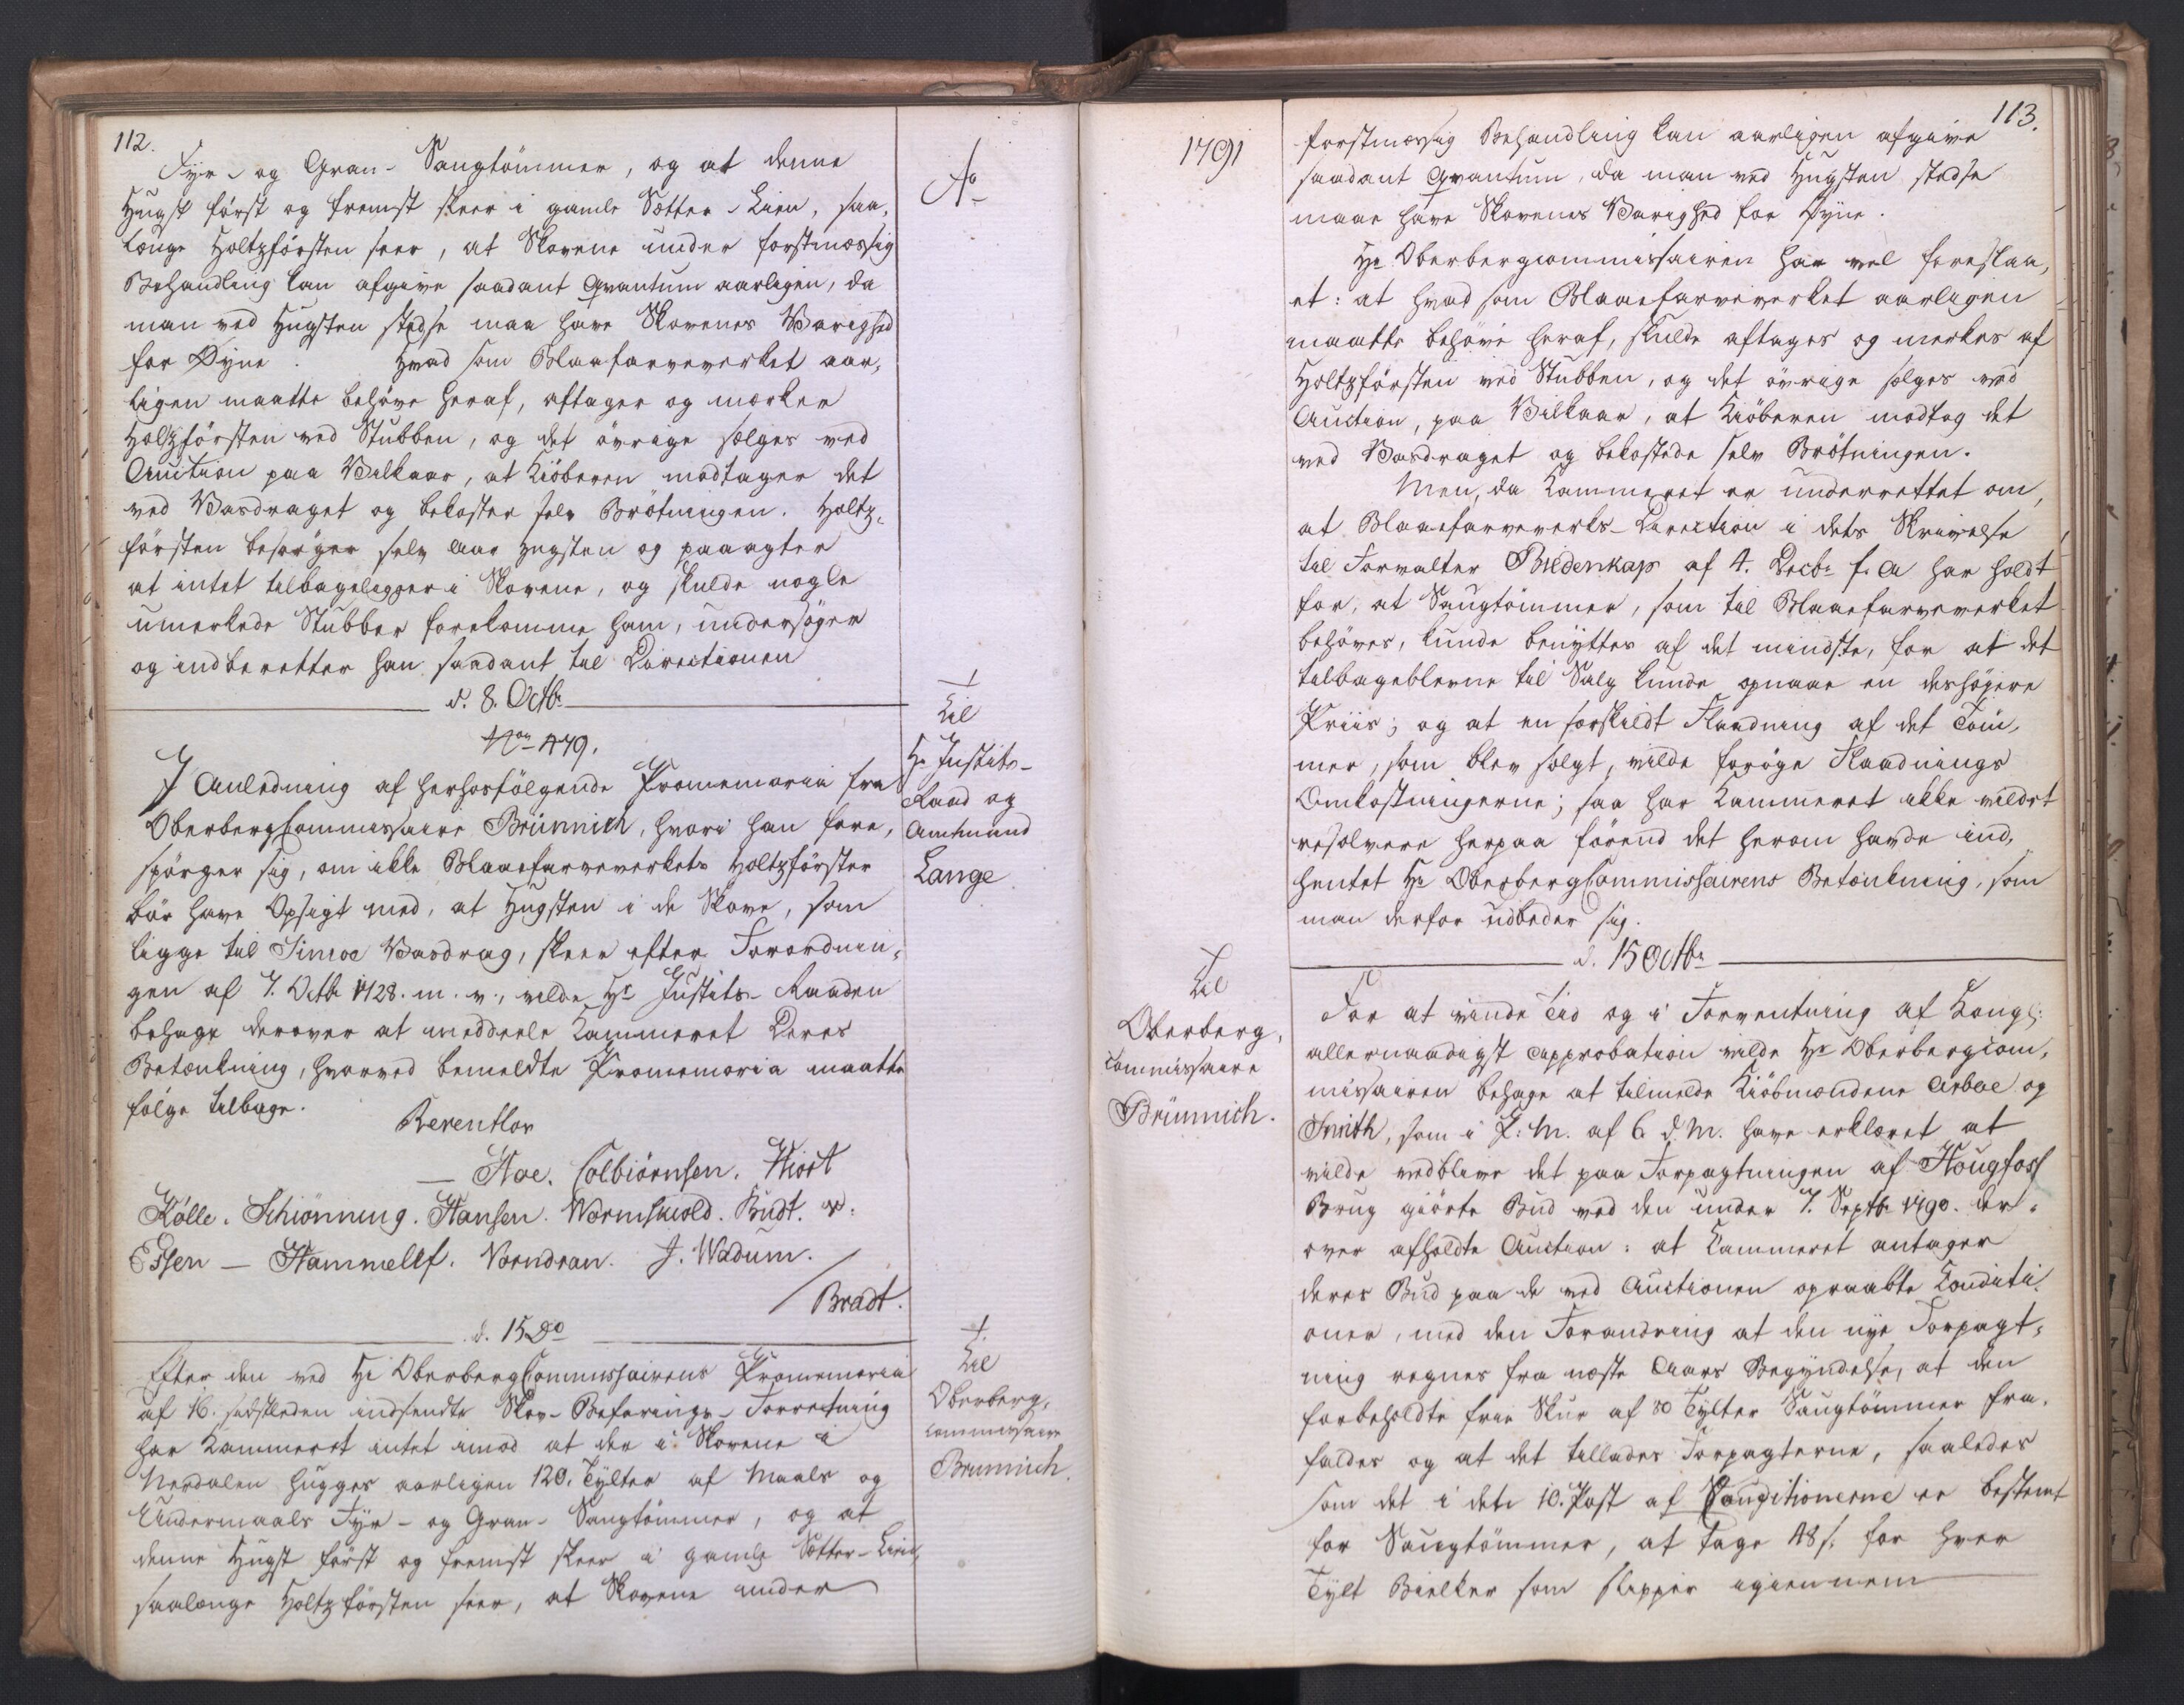 112.
Fyr- og Gran- Saugtömmer, og at denne
Hugst först og fremst skeer i gamle Sætter-Lien, saa-
længe Holtzförsten seer, at Skovene under forstmæssig
Behandling kan afgive saadant Qvantum aarligen, da
man ved Hugsten stedse maa have Skovenes Varighed
for Öyne. Hvad som Blaafarveverket aar-
ligen maatte behöve heraf, aftager og mærker
Holtzförsten ved Stubben, og det övrige sælges ved
Auction paa Vilkaar, at Kiöberen modtager det
ved Vasdraget og bekoster selv Brötningen. Holtz-
försten besörger selv Aar Hugsten og paaagter
at intet tilbageligger i Skovene, og skulde nogle
umerkede Stubber forekomme ham, undersöger
og indberetter han saadant til Directionen
d. 8. Octbr
No 479.
I Anledning af herhosfölgende Promemoria fra
OberbergCommissaire Brünnich, hvori han fore-
spörger sig, om ikke Blaaefarveverkets Holtzförster
bör have Opsigt med, at Hugsten i de Skove, som
ligge til Simoe Vasdrag, skeer efter Forordnin-
gen af 7. Octbr 1728. m. v., vilde Hr Justits-Raaden
behage derover at meddeele Kammeret Deres
Betænkning, hvorved bemeldte Promemoria maatte
fölge tilbage.
Reventlov
— Hoe. Colbiörnsen. Hiort
Kölle. Schiönning. Hansen. Wormskiold. Budt. v.
Essen — Hammelef. Vorndran. J. Wadum.
/ Bradt.
d. 15 Do
Efter den ved Hr OberbergCommissairens Promemoria
af 16. sidstleden indsendte Skov-Befarings-Forretning
har Kammeret intet imod at der i Skovene i
Nerdalen hugges aarligen 120. Tylter af Maals og
Undermaals Fyr- og Gran- Saugtömmer, og at
denne Hugst först og fremst skeer i gamle Sætter-Lien,
saalænge Holtzförsten seer, at Skovene under
Ao
Til
Hr Justits-
Raad og
Amtmand
Lange
Til
Oberberg-
commissaire
Brunnich.
1791
Til
Oberberg-
commissaire
Brünnich.
113.
forstmæssig Behandling kan aarligen afgive
saadant Qvantum, da man ved Hugsten stedse
maae have Skovenes Varighed for Öyne.
Hr Oberbergcommissairen har vel foreslaa-
et: at hvad som Blaaefarveverket aarligen
maatte behöve heraf, skulde aftages og merkes af
Holtzförsten ved Stubben, og det övrige selges ved
Auction, paa Vilkaar, at Kiöberen modtog det
ved Vasdraget og bekostede selv Brötningen.
Men, da Kammeret er underrettet om,
at Blaaefarveverks-Direction i dets Skrivelse
til Forvalter Bildenkap af 4. Decbr f. A har holdt
for, at Saugtömmer, som til Blaaefarveverket
behöves, kunde benyttes af det mindste, for at det
tilbageblevne til Salg kunde opnaae en deshöyere
Priis; og at en forskieldt Flaadning af det Töm-
mer, som blev solgt, vilde foröge Flaadnings
Omkostningerne; saa har Kammeret ikke vildet
resolvere herpaa förend det herom havde ind-
hentet Hr OberbergCommissairens Betænkning, som
man derfor udbeder sig.
d. 15 Octbr
For at vinde Tid og i Forventning af Kongl:
allernaadigst Approbation vilde Hr Oberbergcom-
missairen behage at tilmelde Kiöbmændene Arboe og
Smith, som i P: M. af 6. d. M. have erklæret at
vilde vedblive det paa Forpagtningen af Hougfoss
Brug giorte Bud ved den under 7. Septbr 1790. der-
over afholdte Auction: at Kammeret antager
deres Bud paa de ved Auctionen opraabte Conditi-
oner, med den Forandring at den nye Forpagt-
ning regnes fra næste Aars Begyndelse, at den
forbeholdte frie Skur af 80 Tylter Saugtömmer fra-
falder og at det tillades Forpagterne, saaledes
som det i dets 10. Post af Conditionerne er bestemt
for Saugtömmer, at tage 48 s. for hver
Tylt Bielker som slipper igiennem